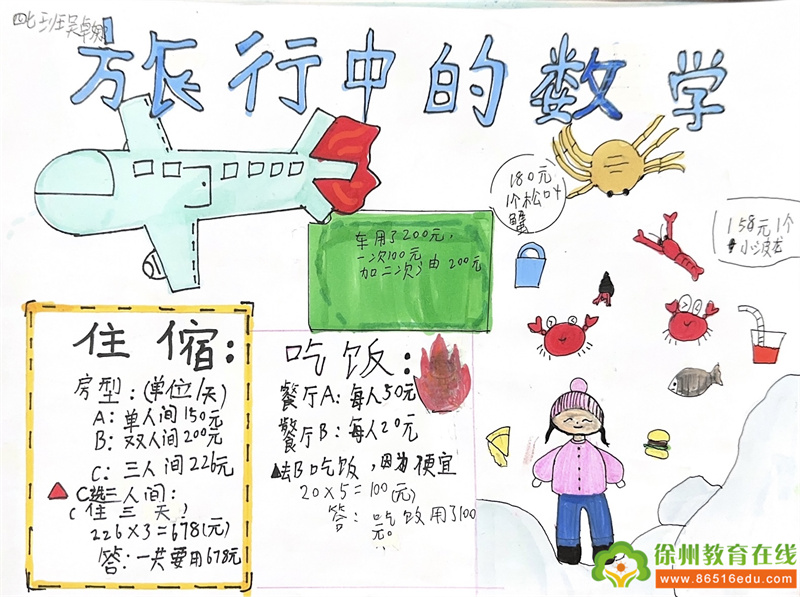 四七班吴卓
旅行中的数学
180元
1个松叶
蟹
158元1个
小波龙
车用了200元,
一次100元
加二次,由200元
住宿:
房型:(单位/天)
A:单人间150元
B:双人间200元
C:三人间226元
▲C选三人间:
(住三天)
226×3=678(元)
答:一共要用678元
吃饭:
餐厅A:每人50元
餐厅B:每人20元
▲去B吃饭,因为便宜
20×5=100(元)
答:吃饭用了100
元。
徐州教育在线
www.86516edu.com